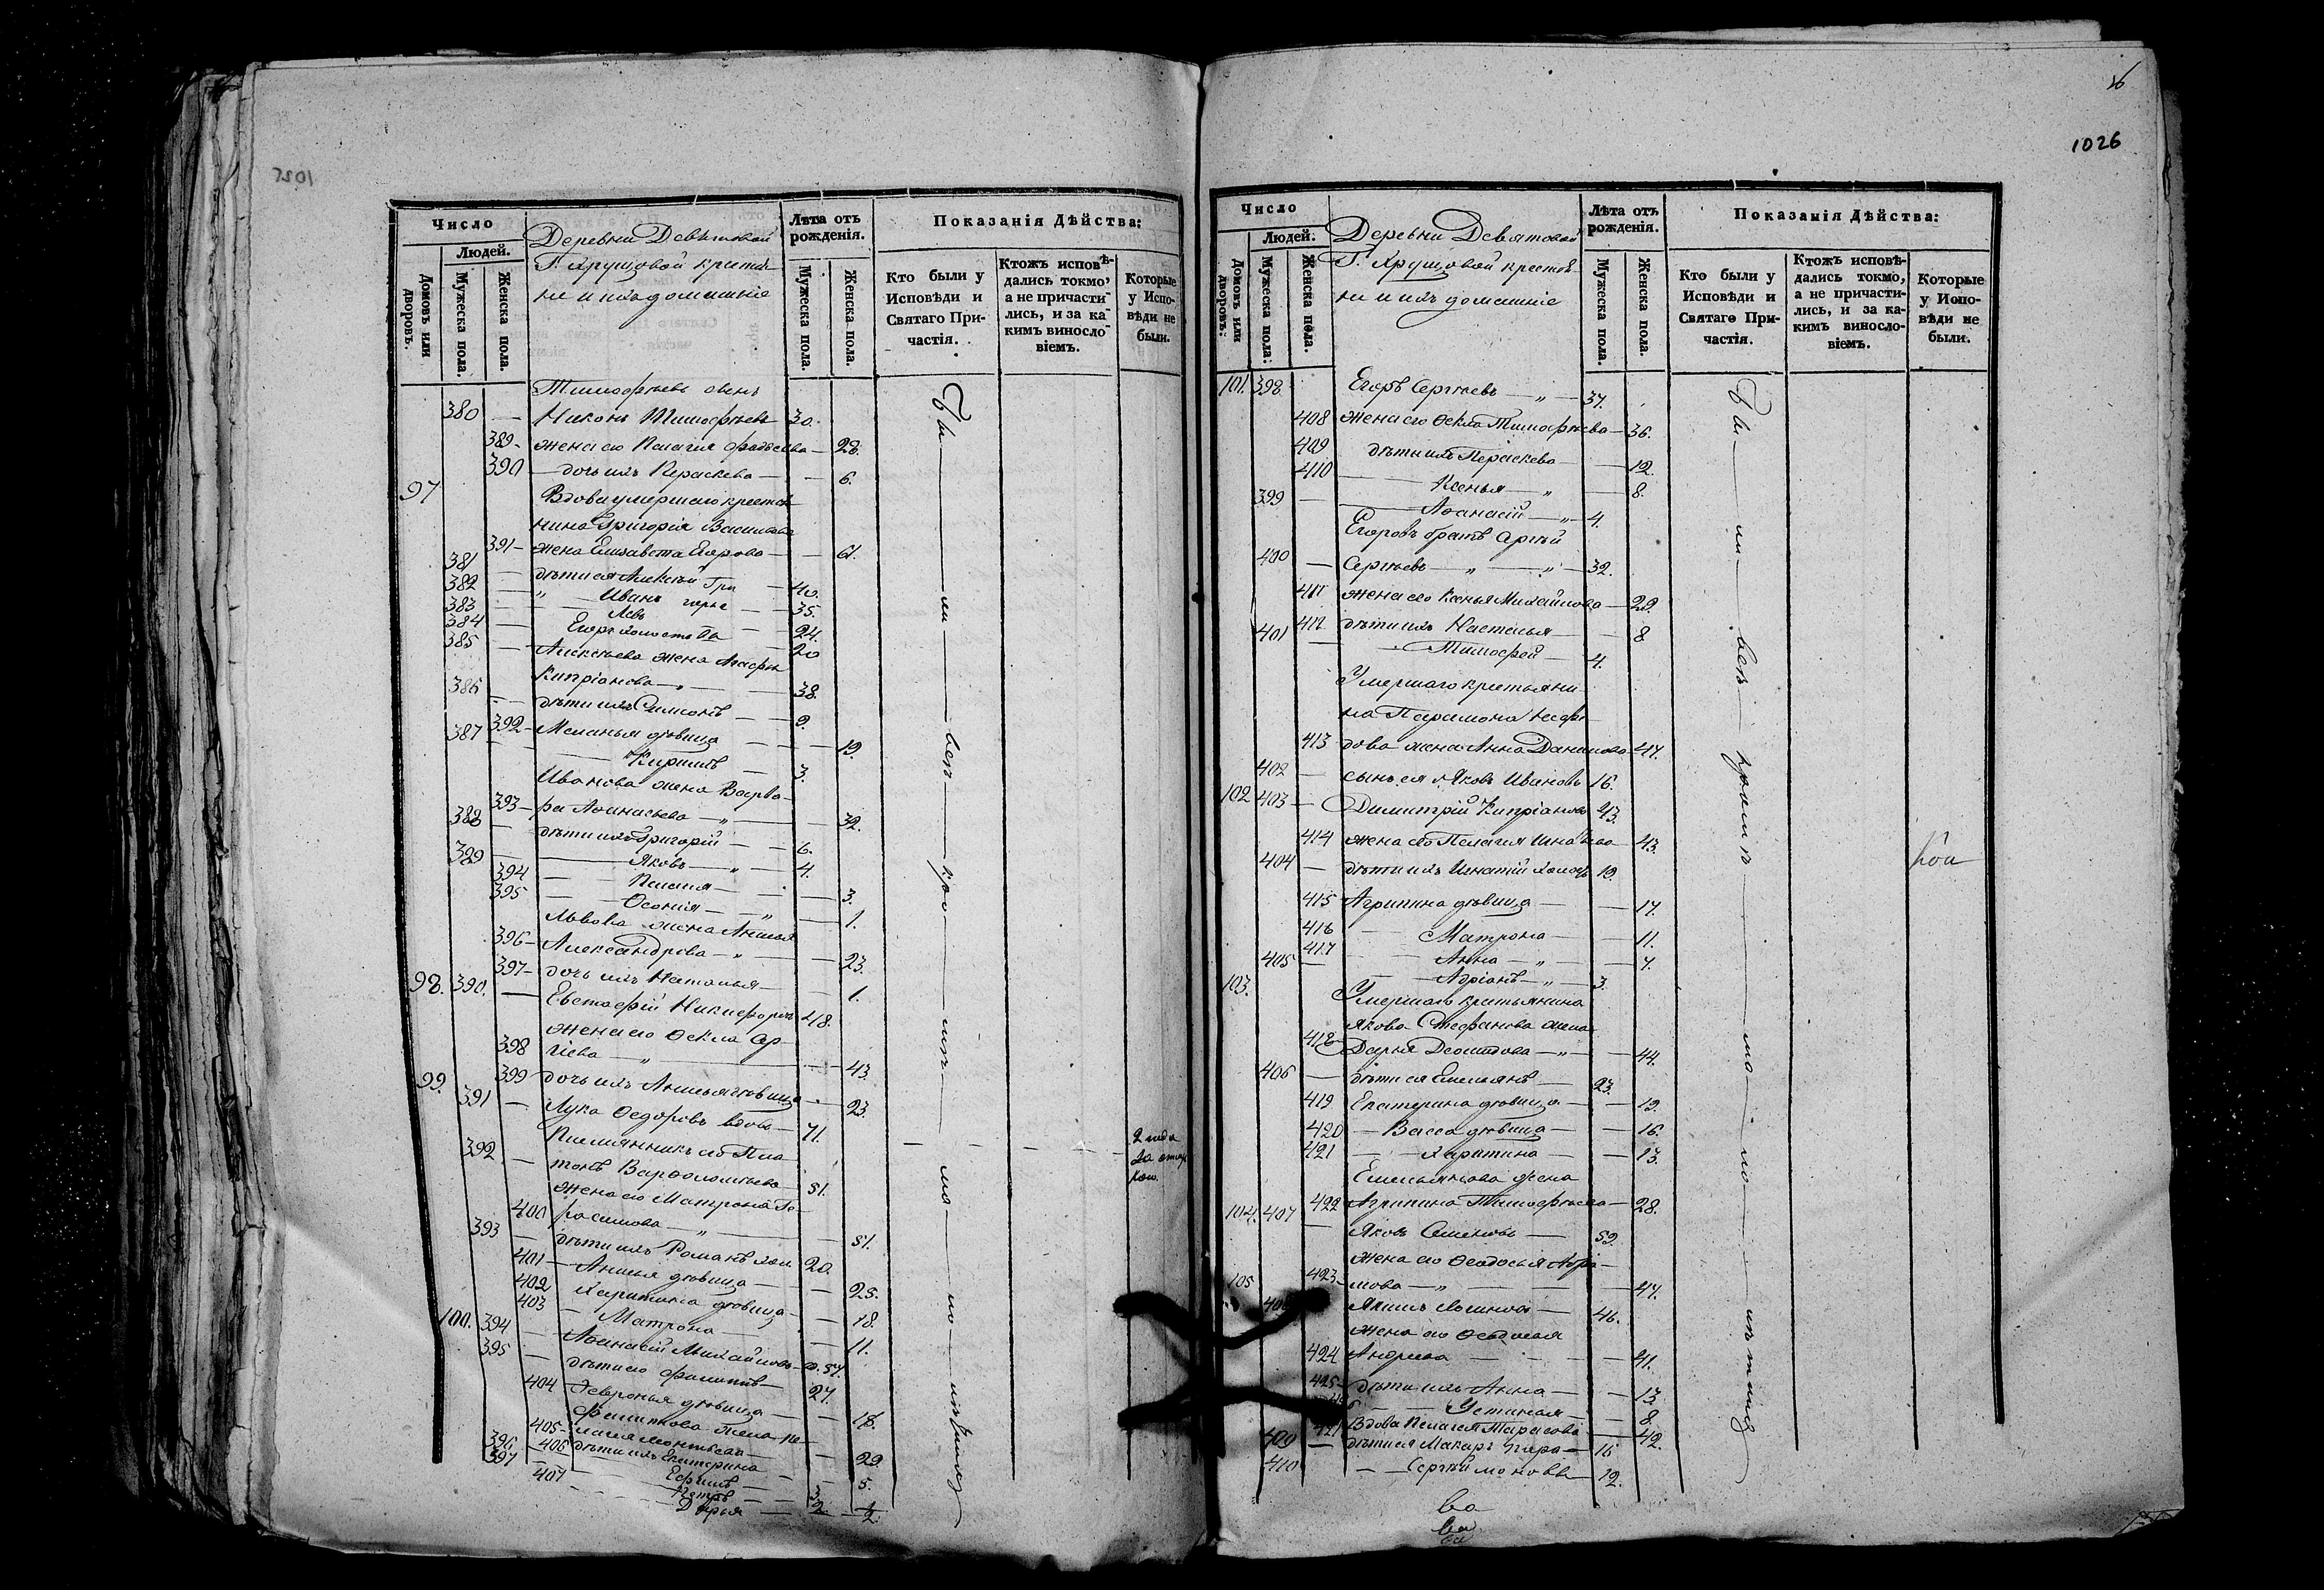 1026
Число
Людей.
Домовъ или дворовъ.
Мужеска пола.
Женска пола.
Деревни Девятовой
Г. Хрущовой крестья
не и ихъ домашніе
Лѣта отъ рожденія.
Мужеска пола.
Женска пола.
Показанія Дѣйства:
Кто были у Исповѣди и Святаго Причастія.
Ктожъ исповѣдались токмо, а не причастились, и за какимъ винословіемъ.
Которые у Исповѣди не были.
Тимофѣевъ сынъ
380 — Никонъ Тимофѣевъ 30.
389 — жена его Пелагия Фадѣева — 28.
390 — дочь ихъ Параскева — 6.
97 Вдова умершаго крестья
нина Григорія Васильева
391 — жена Елизавета Егорова — 61.
381 — дѣти ея Алексѣй Гри 40.
382 — Иванъ горье 35.
383 — Левъ 24.
384 — Егоръ холостъ 20
385 Алексѣева жена Агафья
Кипріанова — 38.
386 — дѣти ихъ Симеонъ — 9.
392 — Меланья дѣвица — 19.
387 Кириллъ — 3.
Иванова жена Варва
393 — ра Аѳанасьева — 32.
388 — дѣти ихъ Григорій — 6.
389 Яковъ — 4.
394 Пелагія — 3.
395 Ѳеонія — 1.
Львова жена Анисья
396 — Александрова — 23.
397 — дочь ихъ Наталья — 1.
98. 390. — Евстафій Никифоровъ 48.
жена его Ѳекла Сер
398 гіева — 43.
399 дочь ихъ Анисья дѣвица — 23.
99. 391 — Лука Ѳедоровъ вдовъ — 71.
Племянникъ его Пла
392 — тонъ Варѳоломѣевъ — 51.
жена его Матрона Ге
400 расимова — 51.
393 — дѣти ихъ Романъ хол 20.
401 — Анисья дѣвица — 25.
402 Харитина дѣвица — 18.
403 — Матрона — 11.
100. 394 — Аѳанасій Михайловъ 57.
395 — дѣти его Филиппъ — 27.
404 Февронья дѣвица — 18.
Филиппова жена Пе
405 — лагея Леонтьева — 29.
406 дѣти ихъ Екатерина — 5.
396 Ефимъ — 3.
397 Петръ — 2.
407 Дарья — 2.
Бы ли всѣ
Число
Людей.
Домовъ или дворовъ.
Мужеска пола.
Женска пола.
Деревни Девятовой
Г. Хрущовой крестья
не и ихъ домашніе
Лѣта отъ рожденія.
Мужеска пола.
Женска пола.
Показанія Дѣйства:
Кто были у Исповѣди и Святаго Причастія.
Ктожъ исповѣдались токмо, а не причастились, и за какимъ винословіемъ.
Которые у Исповѣди не были.
101. 398 Егоръ Сергѣевъ — 37.
408 жена его Ѳекла Тимофѣева — 36.
409 дѣти ихъ Параскева — 12.
410 Ксенья — 8.
399 — Аѳанасій — 4.
Егоровъ братъ Сергѣй
400 — Сергѣевъ — 32.
411 жена его Ксенья Михайлова — 29.
412 дѣти ихъ Настасья — 8
401 — Тимофей — 4.
Умершаго крестьяни
на Парамона Нефе
413 дова жена Анна Данилова 47.
402 — сынъ ея Яковъ Ивановъ 16.
102 403 — Димитрій Кипріановъ 43.
414 жена его Пелагия Игнатьева 43.
404 — дѣти ихъ Игнатій холост 19.
415 Агрипина дѣвица — 17.
416 Матрона — 11.
417 Анна — 7.
405 — Адріанъ — 3.
103. Умершаго крестьянина
Якова Стефанова жена
418 Дарья Леонидова — 44.
406 — дѣти ея Емельянъ — 23.
419 Екатерина дѣвица — 19.
420 — Васса дѣвица — 16.
421 — Харитина — 13.
Емельянова жена
422 Агрипина Тимофѣева — 28.
104. 407 — Яковъ Семеновъ — 59.
жена его Ѳеодосья Абра
423 — мова — 47.
105 408 Якимъ 46.
жена его Ѳеодосья
424 Андреева — 41.
425 — дѣти ихъ Анна — 13
Устинья — 8.
427 Вдова Пелагея Тарасова — 42.
409 — дѣти ея Макаръ 16
410 — Сергѣй 12.
Бы ли всѣ
ва
ва